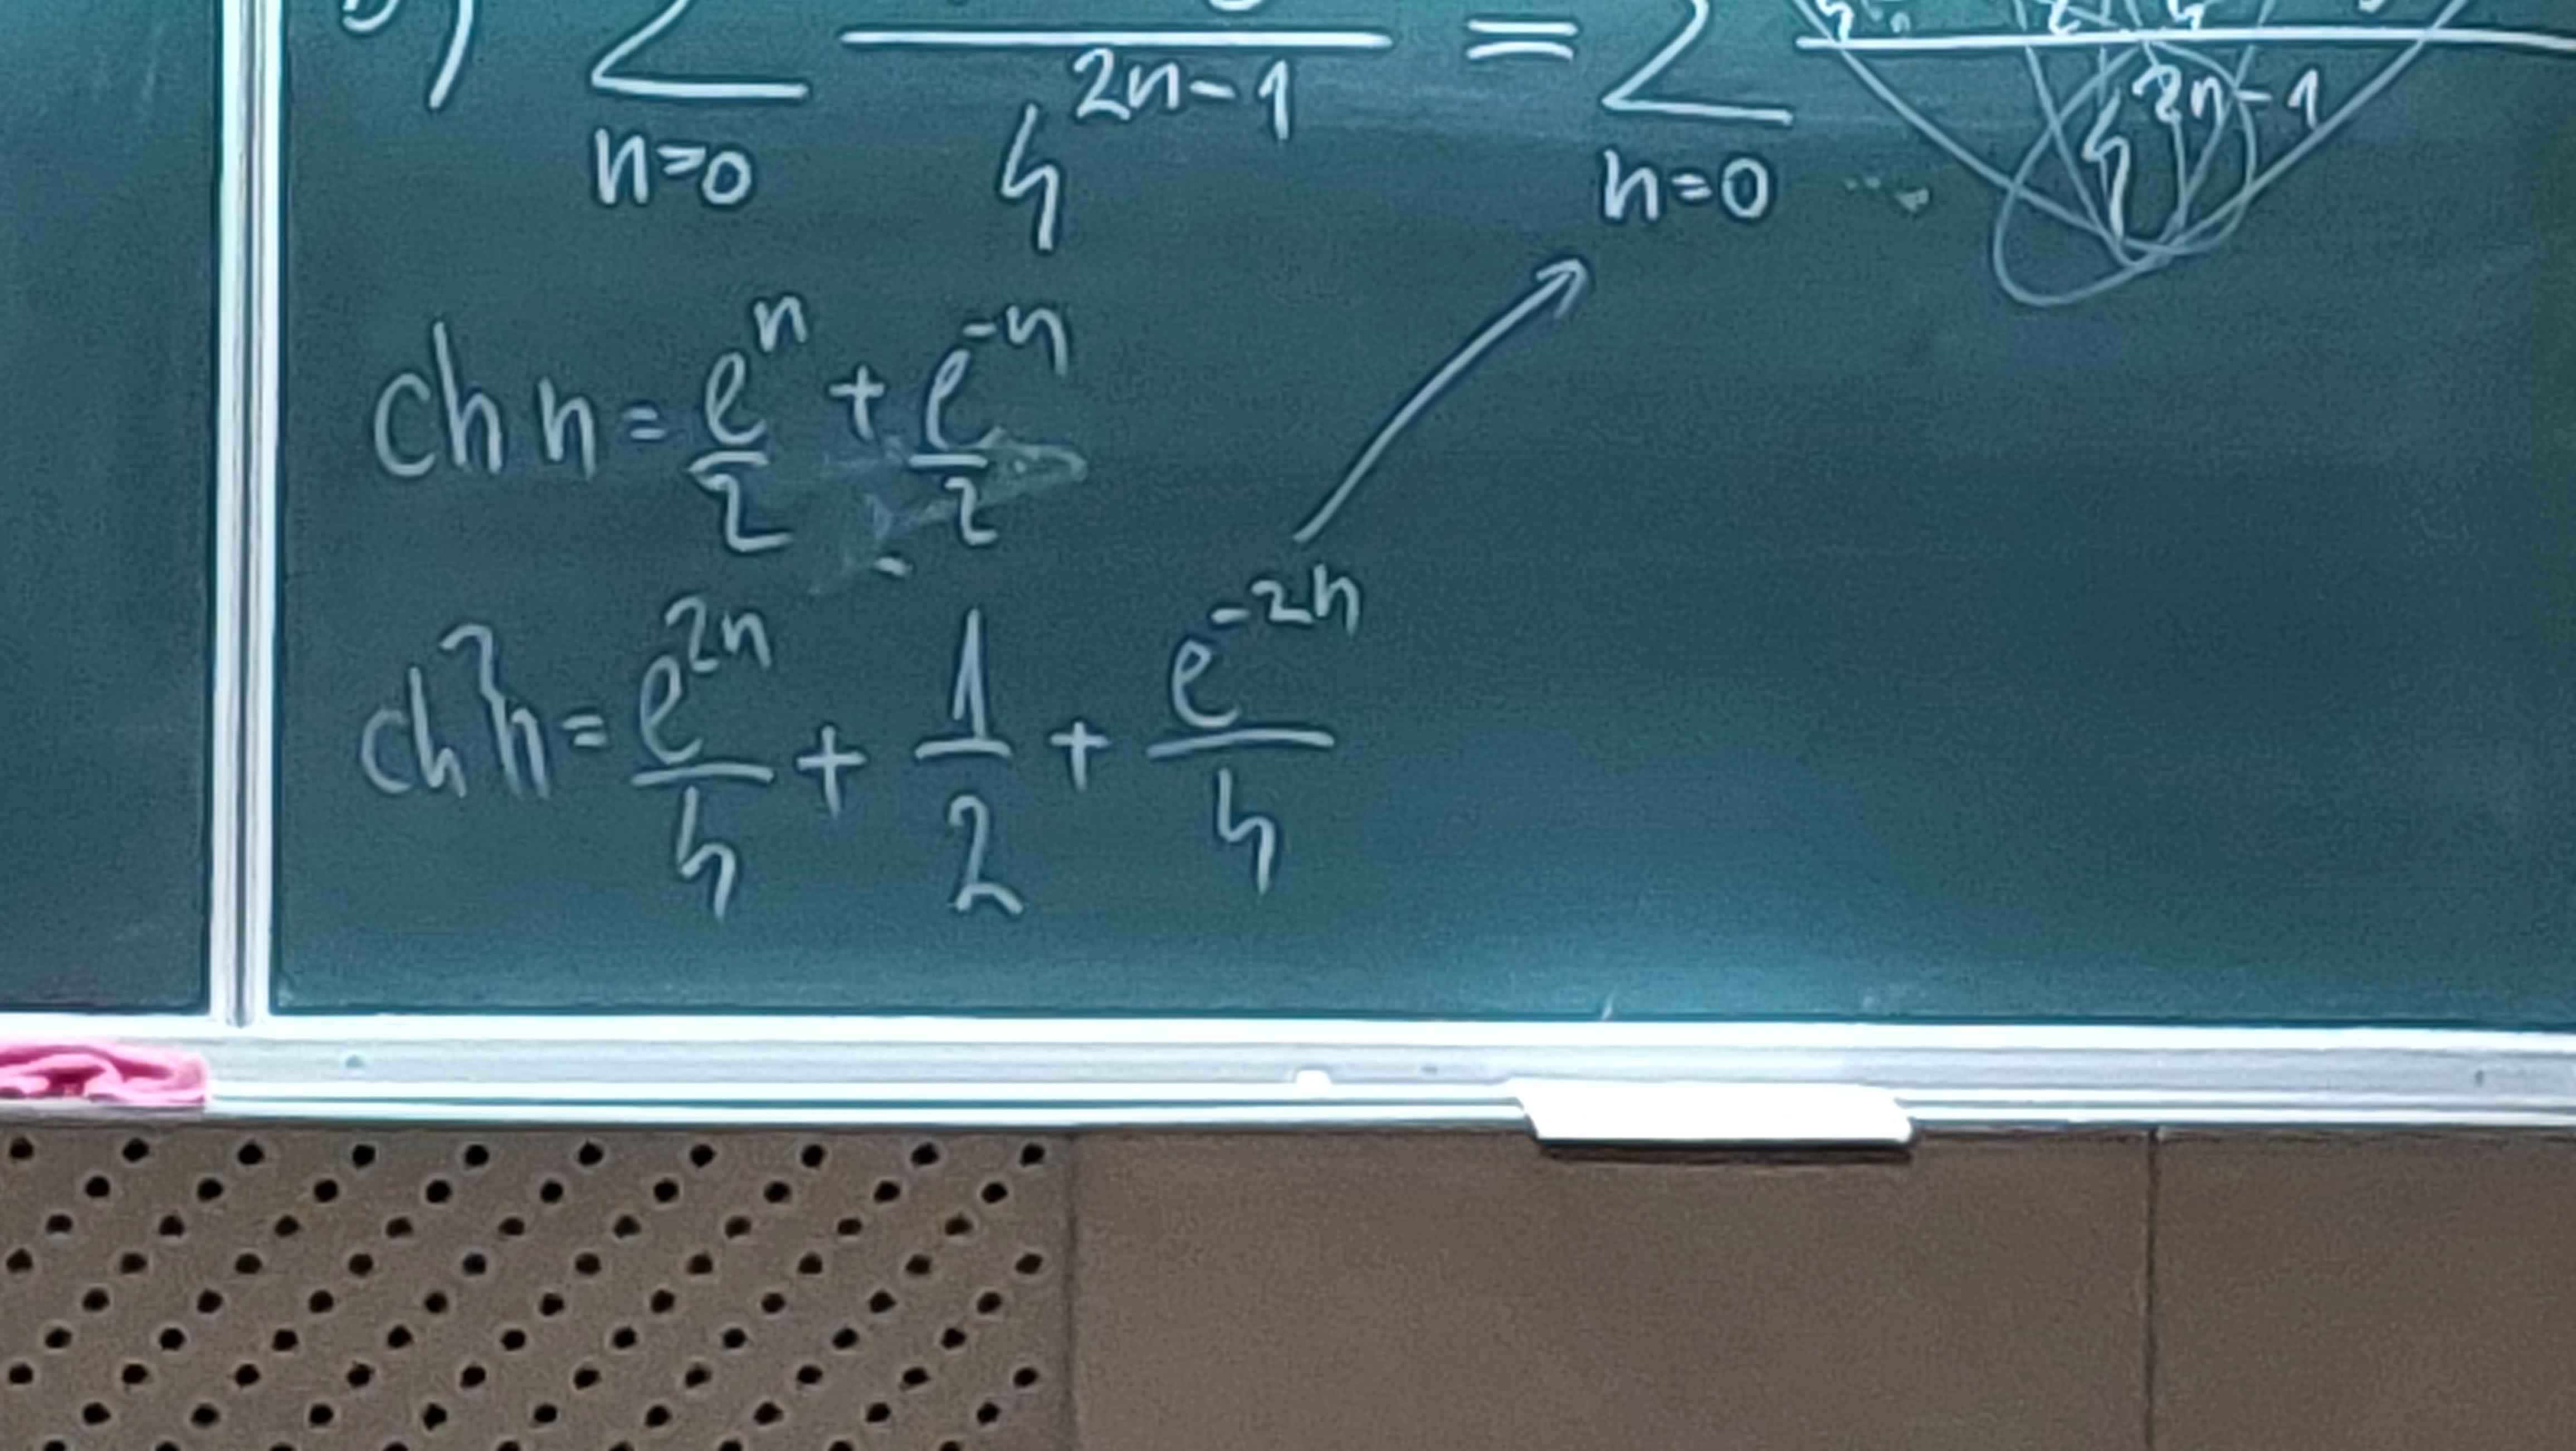 ∑ n=0 / 4^{2n-1} = ∑ n=0 / 4^{2n-1}
ch n = e^n/2 + e^{-n}/2
ch²n = e^{2n}/4 + 1/2 + e^{-2n}/4